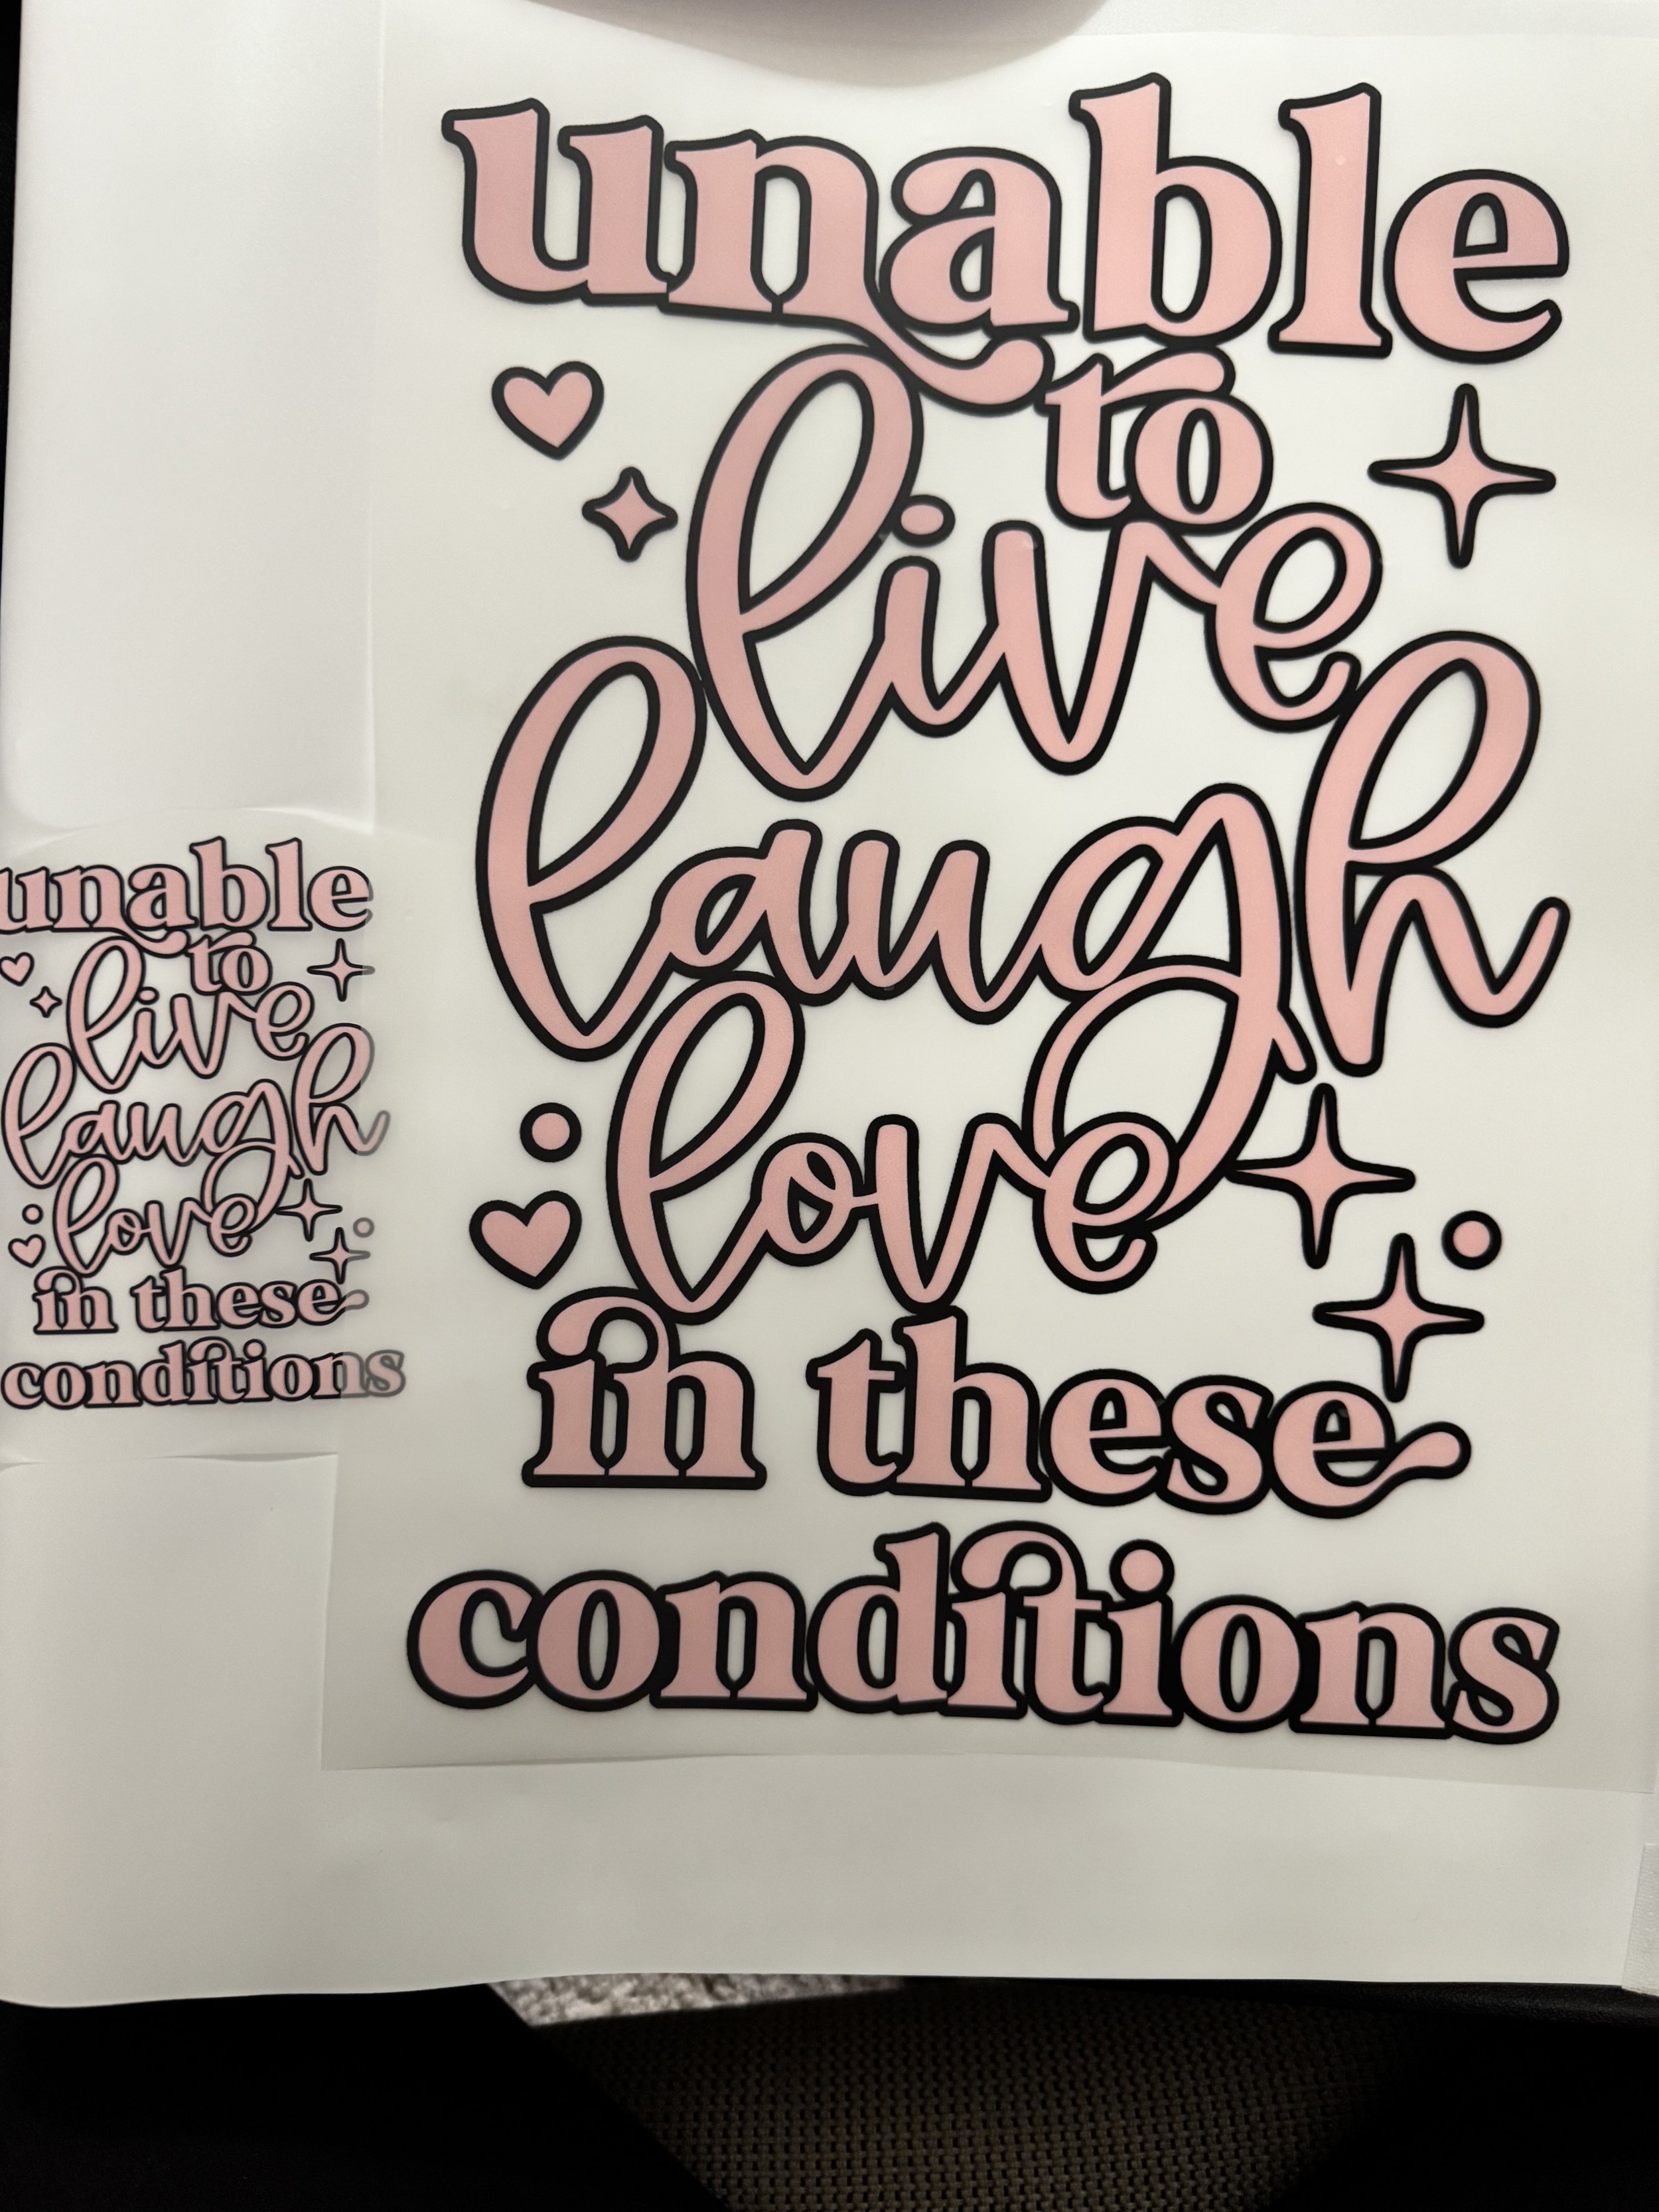 unable
to
live
laugh
love
in these
conditions
unable
to
live
laugh
love
in these
conditions